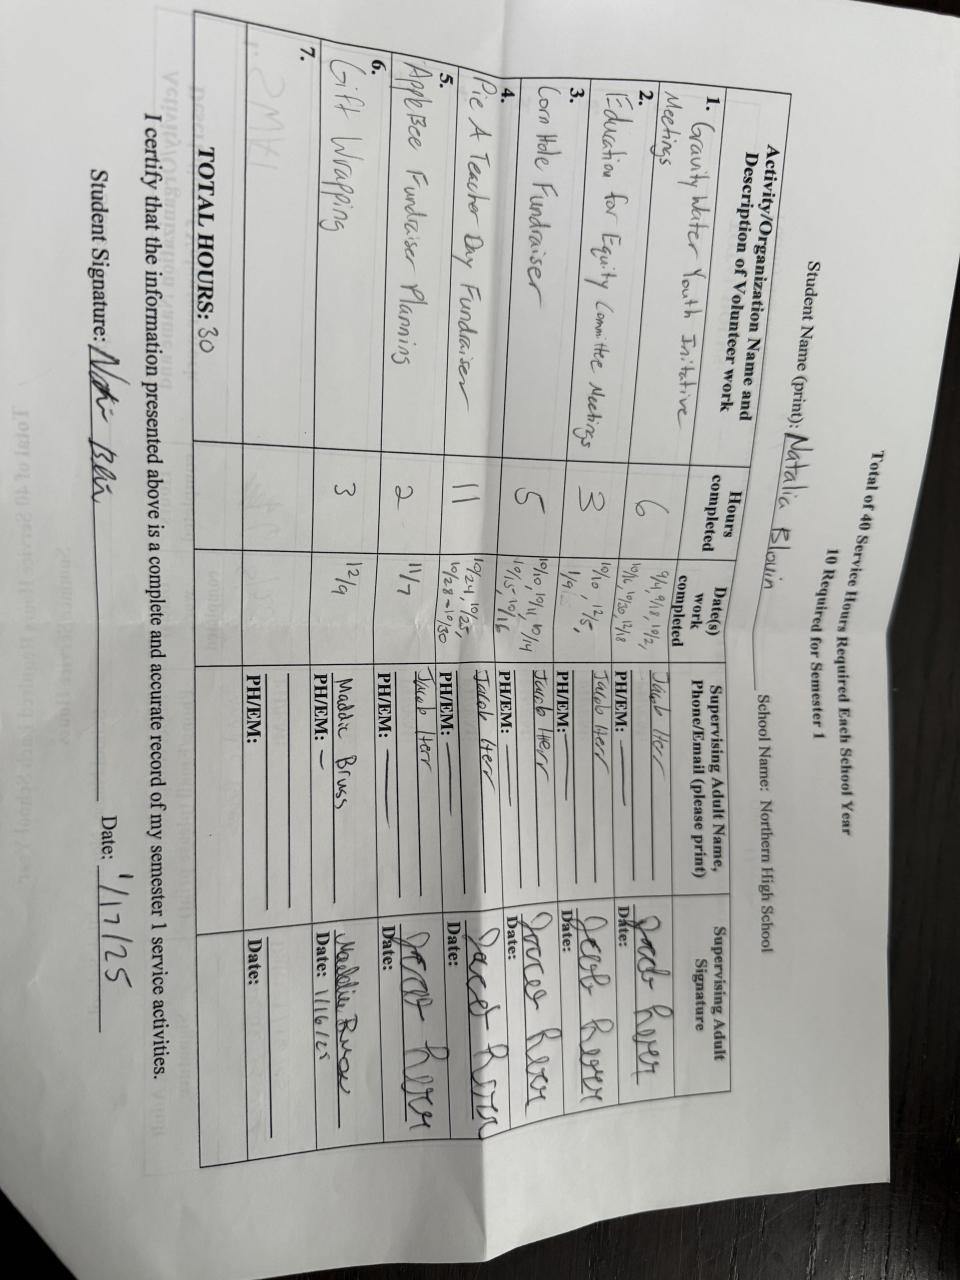 Total of 40 Service Hours Required Each School Year
10 Required for Semester 1
Student Name (print): Natalia Blouin School Name: Northern High School
Activity/Organization Name and Description of Volunteer work
Hours completed
Date(s) work completed
Supervising Adult Name, Phone/Email (please print)
Supervising Adult Signature
1. Gravity Water Youth Initative
Meetings
6
9/4, 9/18, 10/2,
10/16, 10/30, 12/18
Jacob Herr
PH/EM: —
Date:
2. Education for Equity Committee Meetings
3
10/10, 12/5,
1/9
Jacob Herr
PH/EM: —
Date:
3. Corn Hole Fundraiser
5
10/10, 10/11, 10/14
10/15, 10/16
Jacob Herr
PH/EM: —
Date:
4. Pie A Teacher Day Fundraiser
11
10/24, 10/25,
10/28-10/30
Jacob Herr
PH/EM: —
Date:
5. AppleBee Fundraiser Planning
2
11/7
Jacob Herr
PH/EM: —
Date:
6. Gift Wrapping
3
12/9
Maddie Bruss
PH/EM: —
Maddie Bruss
Date: 1/16/25
7.
PH/EM:
Date:
TOTAL HOURS: 30
I certify that the information presented above is a complete and accurate record of my semester 1 service activities.
Student Signature: Date: 1/17/25